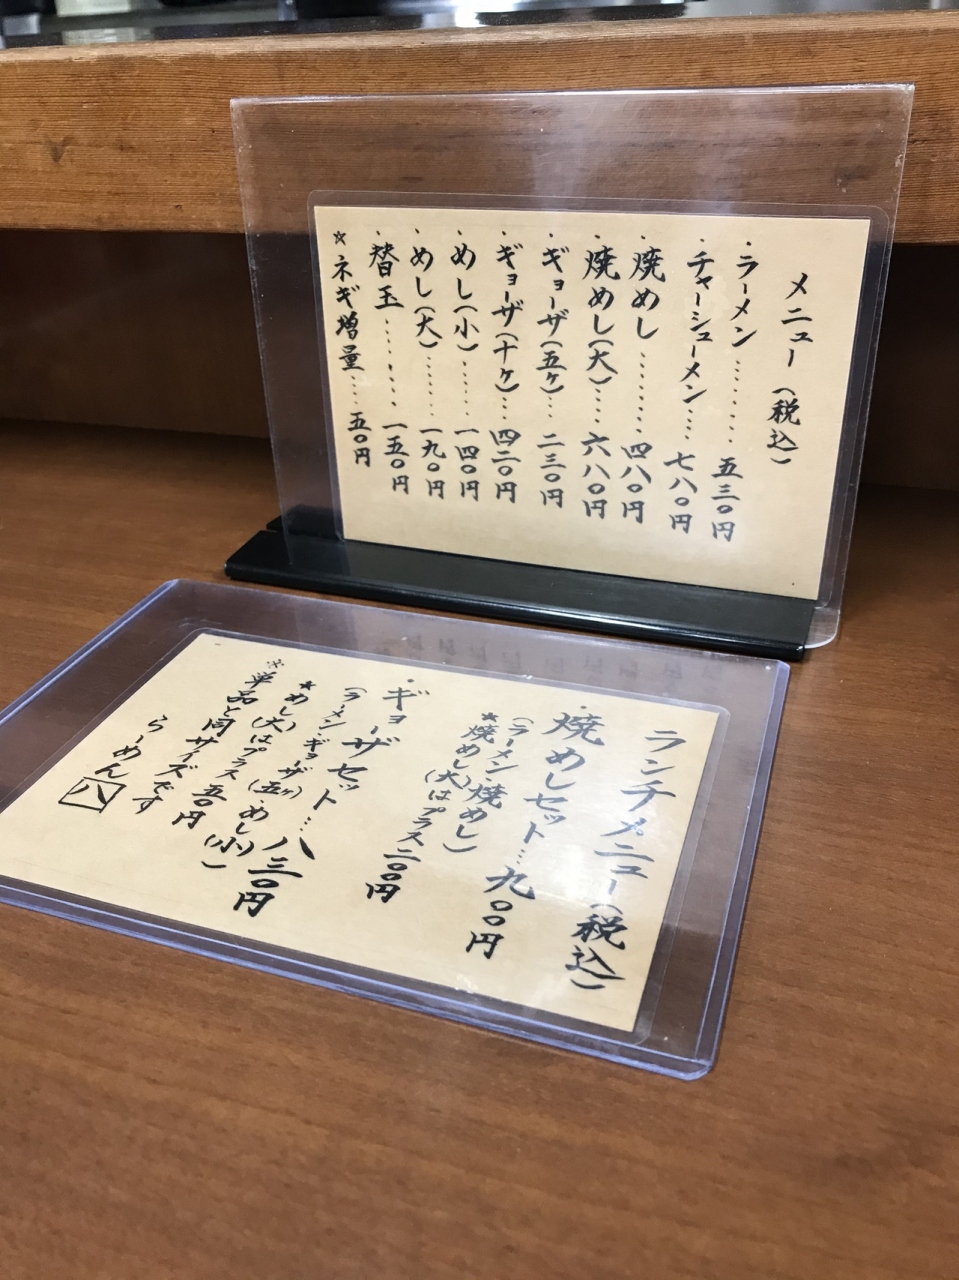 メニュー（税込）
・ラーメン……… 五三〇円
・チャーシューメン…… 七八〇円
・焼めし……… 四八〇円
・焼めし（大）…… 六八〇円
・ギョーザ（五ヶ）… 二三〇円
・ギョーザ（十ヶ）… 四二〇円
・めし（小）…… 一四〇円
・めし（大）…… 一九〇円
・替玉……… 一五〇円
☆ネギ増量…… 五〇円
ランチメニュー（税込）
・焼めしセット…九〇〇円
（ラーメン・焼めし）
★焼めし（大）はプラス二〇〇円
・ギョーザセット…八三〇円
（ラーメン・ギョーザ（五ヶ）・めし（小））
★めし（大）はプラス五〇円
※単品と同サイズです
らーめん八